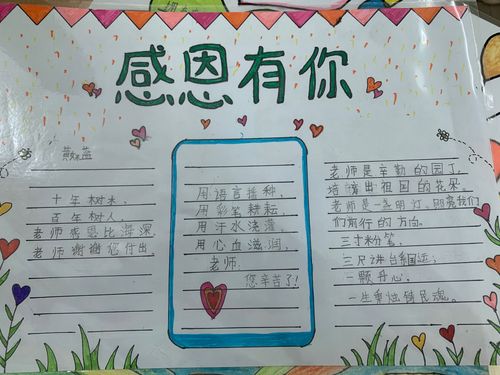 感恩有你
十年树木，
百年树人，
老师恩比海深
老师谢谢您付出。
用语言播种，
用彩笔耕耘，
用汗水浇灌，
用心血滋润，
老师：
您辛苦了！
老师是辛勤的园丁，
培育出祖国的花朵。
老师是一盏明灯，照亮我们
们前行的方向。
三寸粉笔，
三尺讲台系国运；
一颗丹心，
一生秉烛铸民魂。